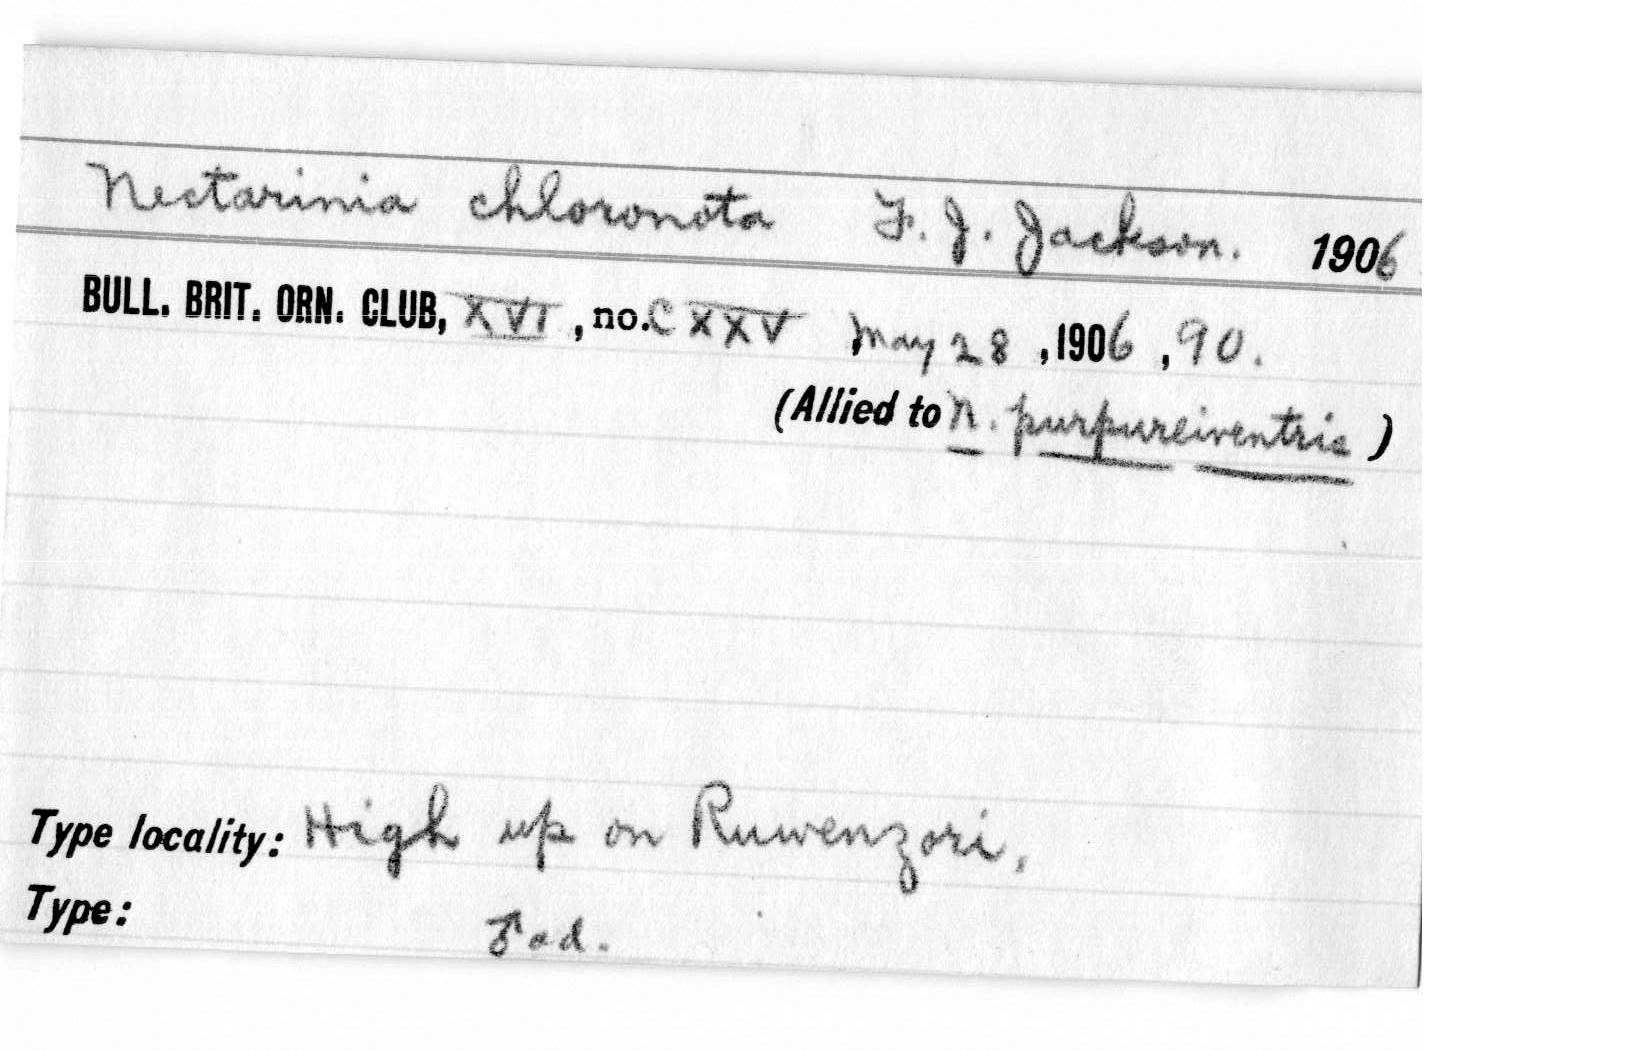 Nectarinia chloronota F. J. Jackson. 1906
BULL. BRIT. ORN. CLUB, XVI, no. CXXV May 28, 1906, 90.
(Allied to N. purpureiventris)
Type locality: High up on Ruwenzori,
Type: ♂ ad.